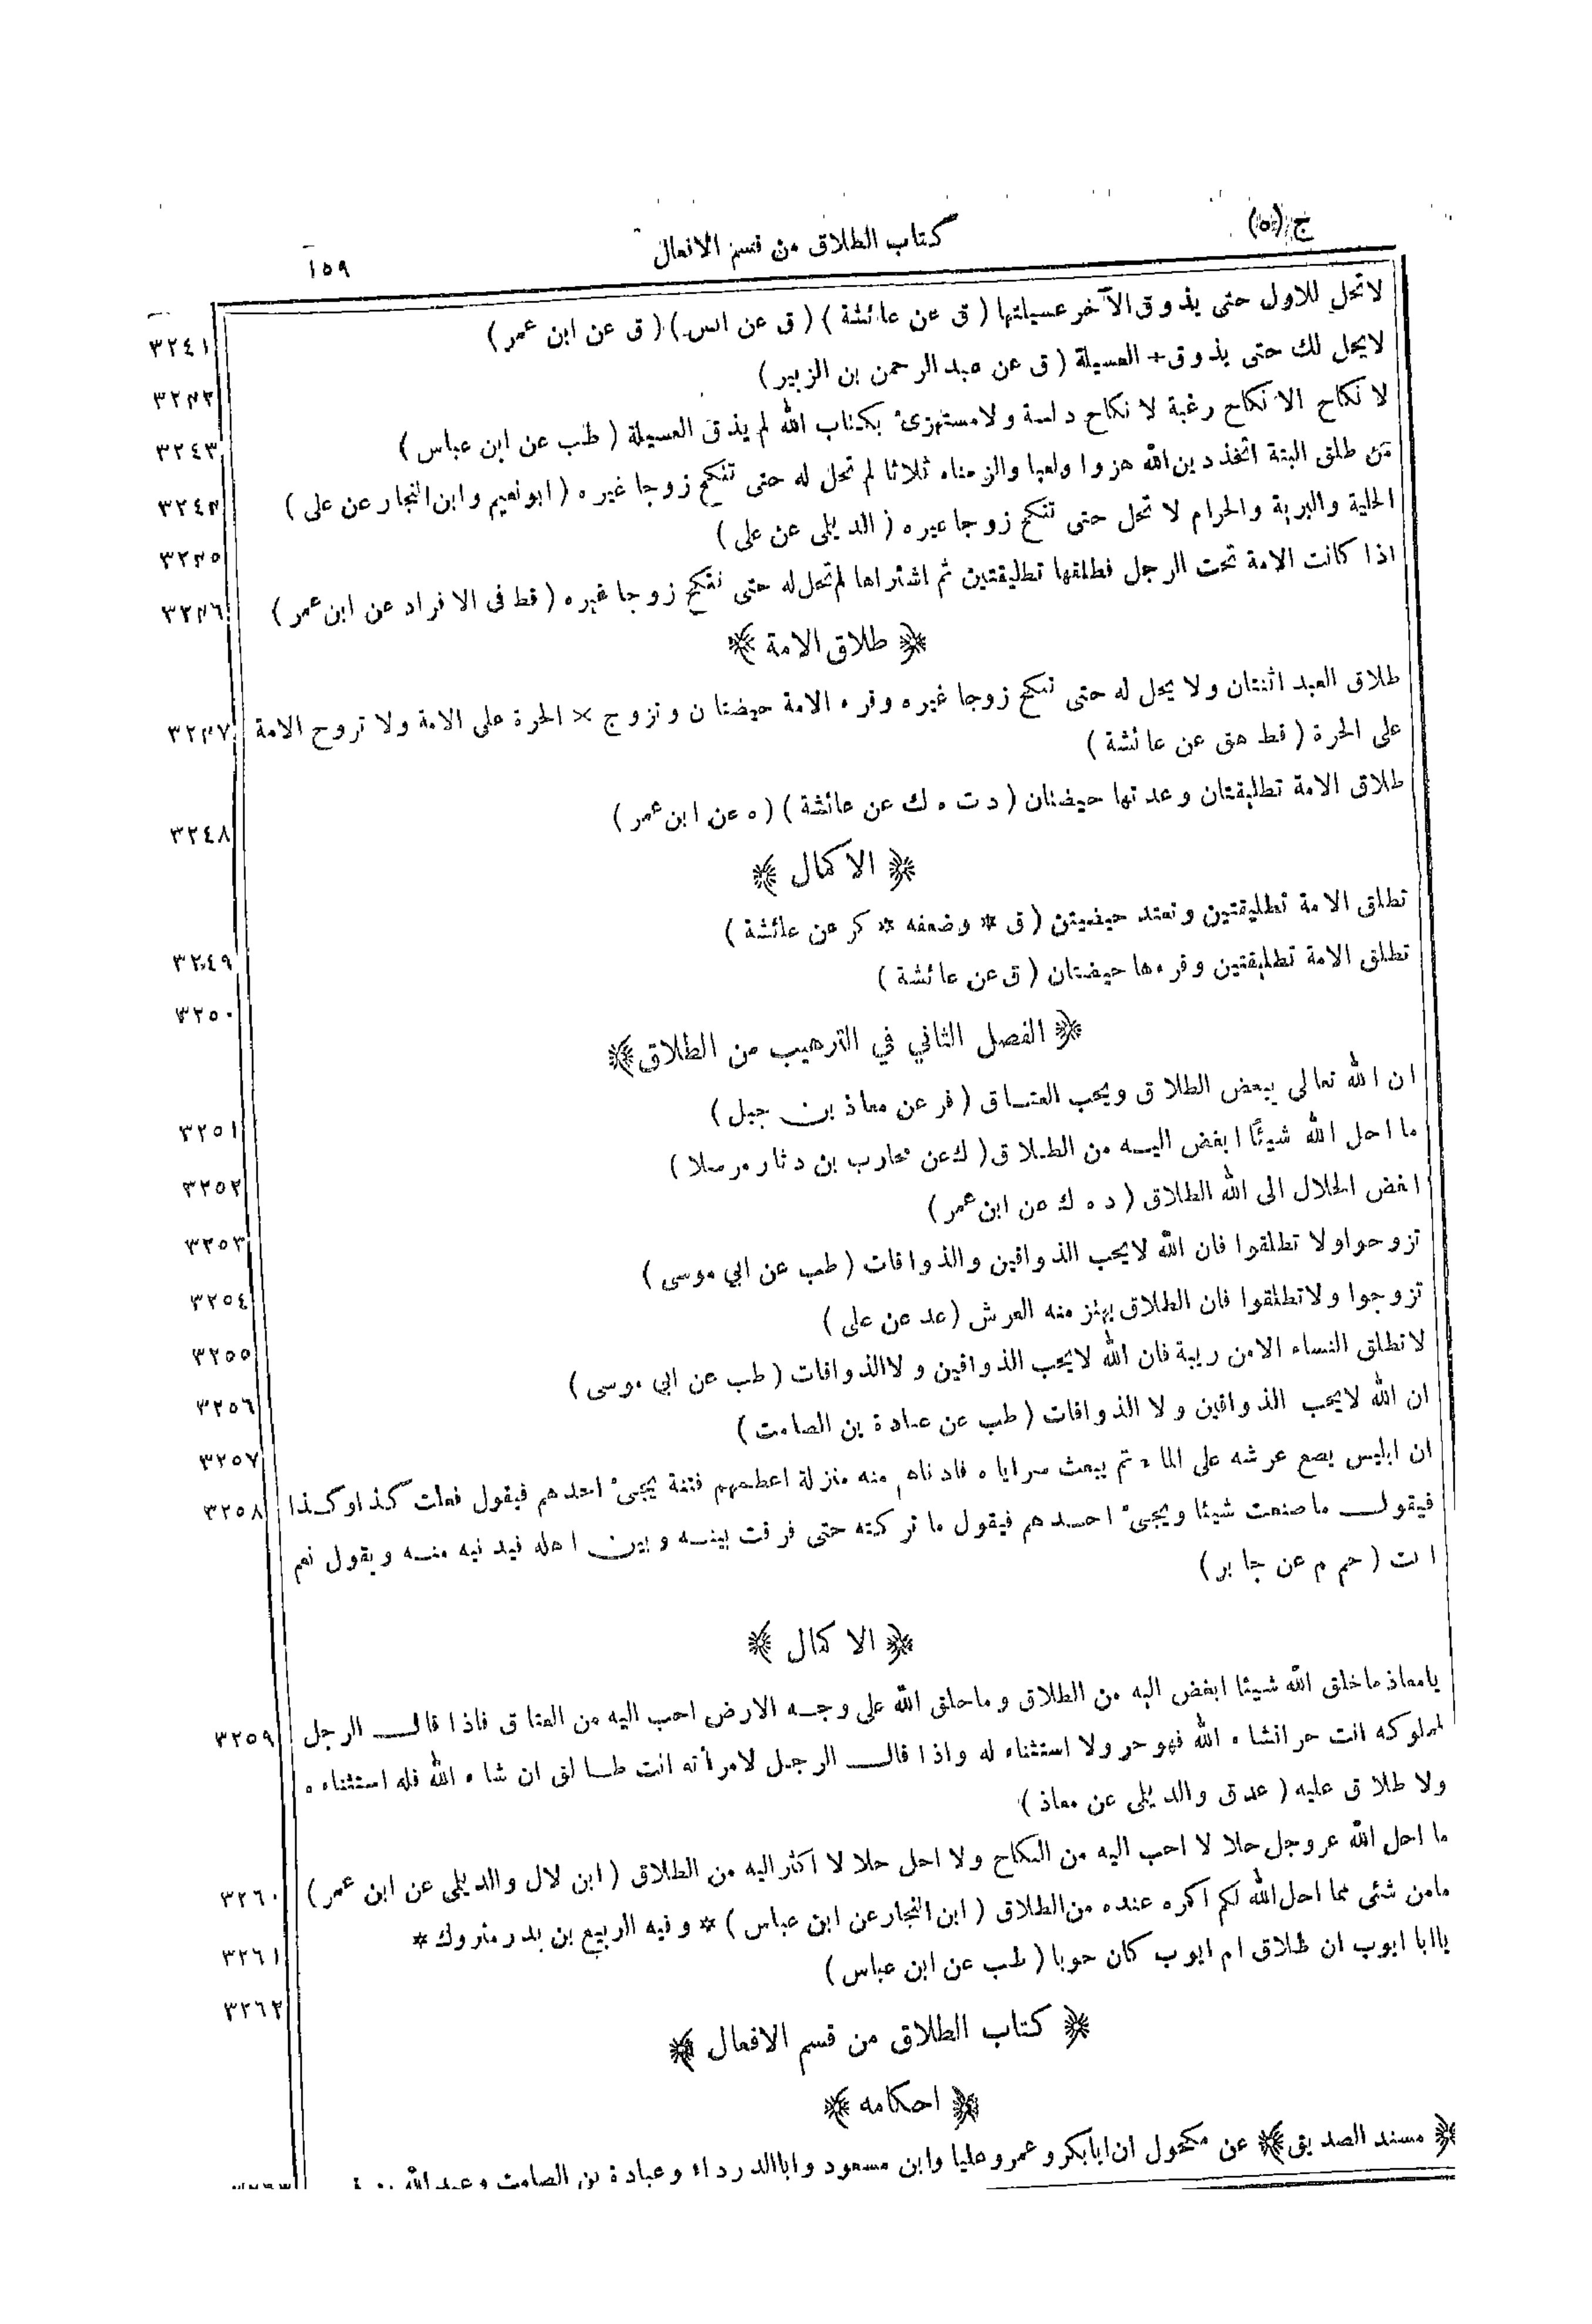 ج (٥)
كتاب الطلاق من قسم الافعال
١٥٩
لاتحل للاول حتى يذوق الآخر عسيلتها ( ق عن عائشة ) ( ق عن انس ) ( ق عن ابن عمر ) ٣٢٤١
لايحل لك حتى يذوق + العسيلة ( ق عن عبد الرحمن بن الزبير ) ٣٢٤٢
لا نكاح الا نكاح رغبة لا نكاح دلسة ولا مستهزئ بكتاب الله لم يذق العسيلة ( طب عن ابن عباس ) ٣٢٤٣
من طلق البتة اتخذ دين الله هزوا ولعبا والزمناه ثلاثا لم تحل له حتى تنكح زوجا غيره ( ابو نعيم وابن النجار عن على ) ٣٢٤٤
الخلية والبرية والحرام لا تحل حتى تنكح زوجا غيره ( الديلى عن على ) ٣٢٤٥
اذا كانت الامة تحت الرجل فطلقها تطليقتين ثم اشتراها لم تحل له حتى تنكح زوجا غيره ( قط فى الافراد عن ابن عمر ) ٣٢٤٦
﴿ طلاق الامة ﴾
طلاق العبد اثنتان ولا يحل له حتى تنكح زوجا غيره وقرء الامة حيضتان وتزوج × الحرة على الامة ولا تزوج الامة ٣٢٤٧
على الحرة ( قط هق عن عائشة )
طلاق الامة تطليقتان وعدتها حيضتان ( د ت ه ك عن عائشة ) ( ه عن ابن عمر ) ٣٢٤٨
﴿ الاكمال ﴾
تطلق الامة تطليقتين وتعتد حيضيتن ( ق * وضعفه * كر عن عائشة ) ٣٢٤٩
تطلق الامة تطليقتين وقرءها حيضتان ( ق عن عائشة ) ٣٢٥٠
﴿ الفصل الثاني في الترهيب من الطلاق ﴾
ان الله تعالى يبغض الطلاق ويحب العتاق ( فر عن معاذ بن جبل ) ٣٢٥١
ما احل الله شيئًا ابغض اليه من الطلاق ( ك عن محارب بن دثار مرسلا ) ٣٢٥٢
ابغض الحلال الى الله الطلاق ( د ه ك عن ابن عمر ) ٣٢٥٣
تزوجوا ولا تطلقوا فان الله لايحب الذواقين والذواقات ( طب عن ابي موسى ) ٣٢٥٤
تزوجوا ولا تطلقوا فان الطلاق يهتز منه العرش ( عد عن على ) ٣٢٥٥
لا تطلق النساء الا من ريبة فان الله لايحب الذواقين ولا الذواقات ( طب عن ابي موسى ) ٣٢٥٦
ان الله لايحب الذواقين ولا الذواقات ( طب عن عبادة بن الصامت ) ٣٢٥٧
ان ابليس يضع عرشه على الماء ثم يبعث سراياه فادناهم منه منزلة اعظمهم فتنة يجئ احدهم فيقول فعلت كذا وكذا ٣٢٥٨
فيقول ما صنعت شيئا ويجئ احدهم فيقول ما تركته حتى فرقت بينه وبين اهله فيدنيه منه ويقول نعم
انت ( حم م عن جابر )
﴿ الاكمال ﴾
يا معاذ ما خلق الله شيئا ابغض اليه من الطلاق وما خلق الله على وجه الارض احب اليه من العتاق فاذا قال الرجل ٣٢٥٩
لمملوكه انت حر انشاء الله فهو حر ولا استثناء له واذا قال الرجل لامرأته انت طالق ان شاء الله فله استثناءه
ولا طلاق عليه ( عد ق والديلى عن معاذ )
ما احل الله عز وجل حلالا احب اليه من النكاح ولا احل حلالا اكثر اليه من الطلاق ( ابن لال والديلى عن ابن عمر ) ٣٢٦٠
ما من شئى مما احل الله لكم اكره عنده من الطلاق ( ابن النجار عن ابن عباس ) * وفيه الربيع بن بدر متروك * ٣٢٦١
يا ابا ايوب ان طلاق ام ايوب كان حوبا ( طب عن ابن عباس ) ٣٢٦٢
﴿ كتاب الطلاق من قسم الافعال ﴾
﴿ احكامه ﴾
﴿ مسند الصديق ﴾ عن مكحول ان ابابكر وعمر وعليا وابن مسعود وابا الدرداء وعبادة بن الصامت وعبد الله بن ٣٢٦٣